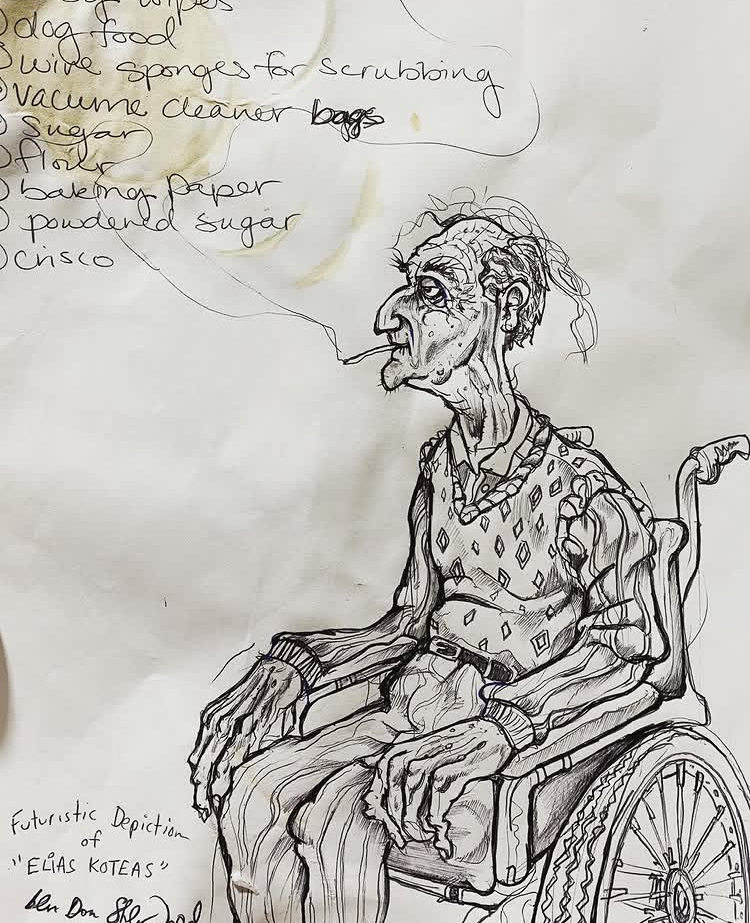 wipes
dog food
wire sponges for scrubbing
Vacume cleaner bags
Sugar
flour
baking paper
powdered sugar
crisco
Futuristic Depiction
of
"ELiAS KOTEAS"